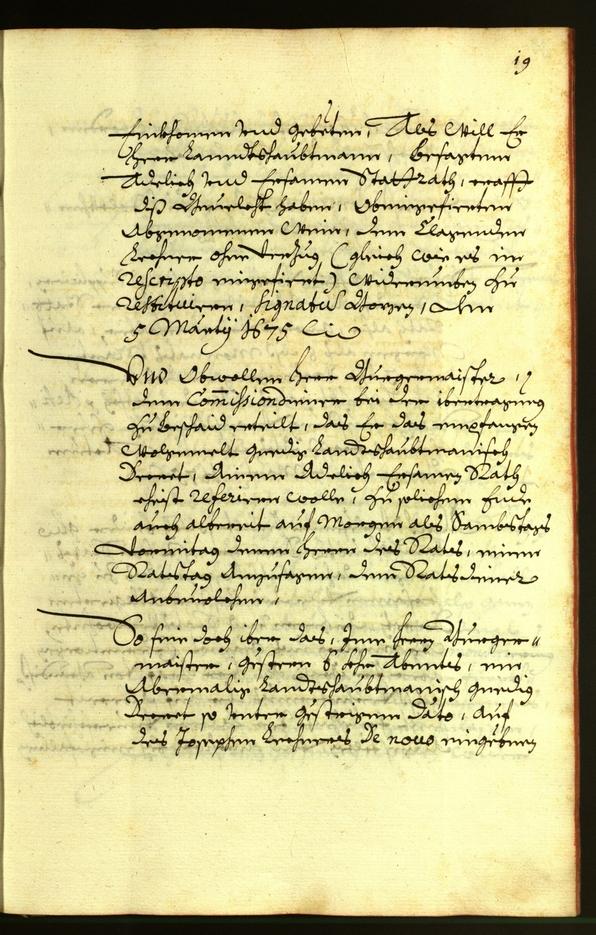 19
einkhomen und gebeten, Als Will Er
Herr Landtshaubtmann, besagtem
Adelich und Ersamen Stattrath, crafft
diß bevelcht haben, Obinserierten
Abgenomenen Wein, dem Clagenden
Lechner ohne verzug (gleich wie es im
rescripto inseriert) widerumben zu
restituieren, Signatum Bozen, den
5 Martij 1675
Und Obwollen Herr Burgermaister,
dem Commissiondiener bei der ibertragung
zu beschaid erteilt, das Er das empfangen
Wolermelt gnedig Landtshaubtmanisch
Decret, Ainem Adelich Ersamen Rath
ehist referieren wolle, zu solichem Ende
auch albereit auf Morgen als Sambstags
vormitag denen Herrn des Rates, einen
Ratstag Anzusagen, dem Ratsdiener
Anbevolchen,
So seie doch iber das, Ime Herrn Burger-
maister, gestern 6 Uhr Abents, ein
Abermalig Landtshaubtmanisch gnedig
Decret so unter gestrigem dato, Auf
des Josephen Lechners De novo eingeben